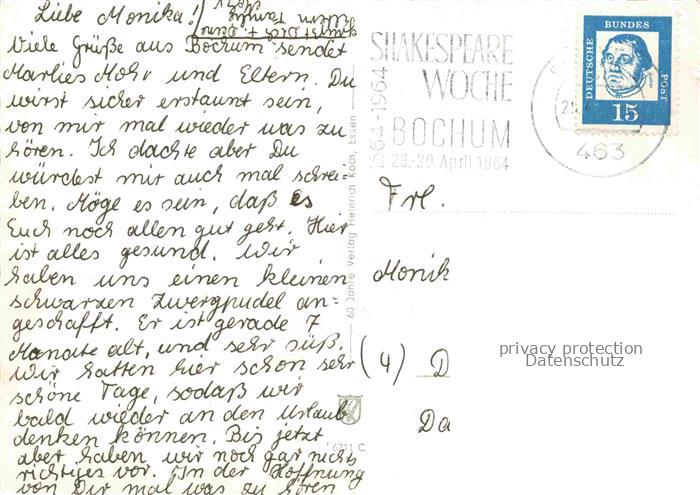 Liebe Monika!
Viele Grüße aus Bochum sendet
Marlies Mohr und Eltern. Du
wirst sicher erstaunt sein,
von mir mal wieder was zu
hören. Ich dachte aber Du
würdest mir auch mal schrei-
ben. Möge es sein, daß es
Euch noch allen gut geht. Hier
ist alles gesund. Wir
haben uns einen kleinen
schwarzen Zwergpudel an-
geschafft. Er ist gerade 7
Monate alt, und sehr süß.
Wir hatten hier schon sehr
schöne Tage, sodaß wir
bald wieder an den Urlaub
denken können. Bis jetzt
aber haben wir noch gar nichts
richtiges vor. In der Hoffnung
von Dir mal was zu hören
60 Jahre Verlag Heinrich Koch, Essen
6211 C
1564-1964
SHAKESPEARE
WOCHE
BOCHUM
23.-30. April 1964
463
DEUTSCHE
BUNDES
POST
15
Frl.
Monik
(4) D
Da
privacy protection
Datenschutz